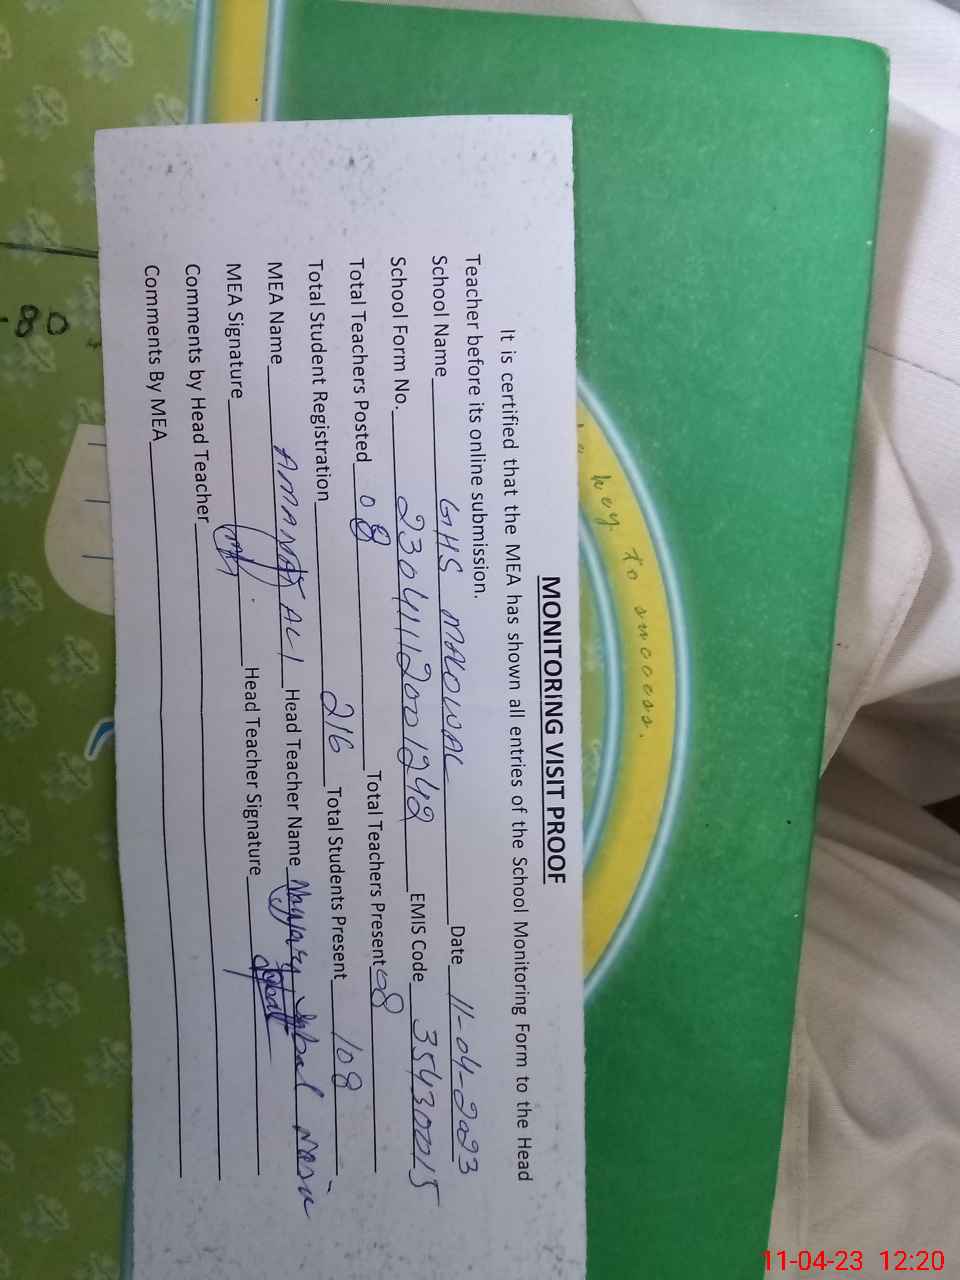 MONITORING VISIT PROOF
It is certified that the MEA has shown all entries of the School Monitoring Form to the Head
Teacher before its online submission.
School Name GHS MALOWAL Date 11-04-2023
School Form No. 23041112001242 EMIS Code 35430015
Total Teachers Posted 08 Total Teachers Present 08
Total Student Registration 216 Total Students Present 108
MEA Name AMANAT ALI Head Teacher Name Nayyar Iqbal
MEA Signature Head Teacher Signature
Comments by Head Teacher
Comments By MEA
key to success.
80
11-04-23 12:20